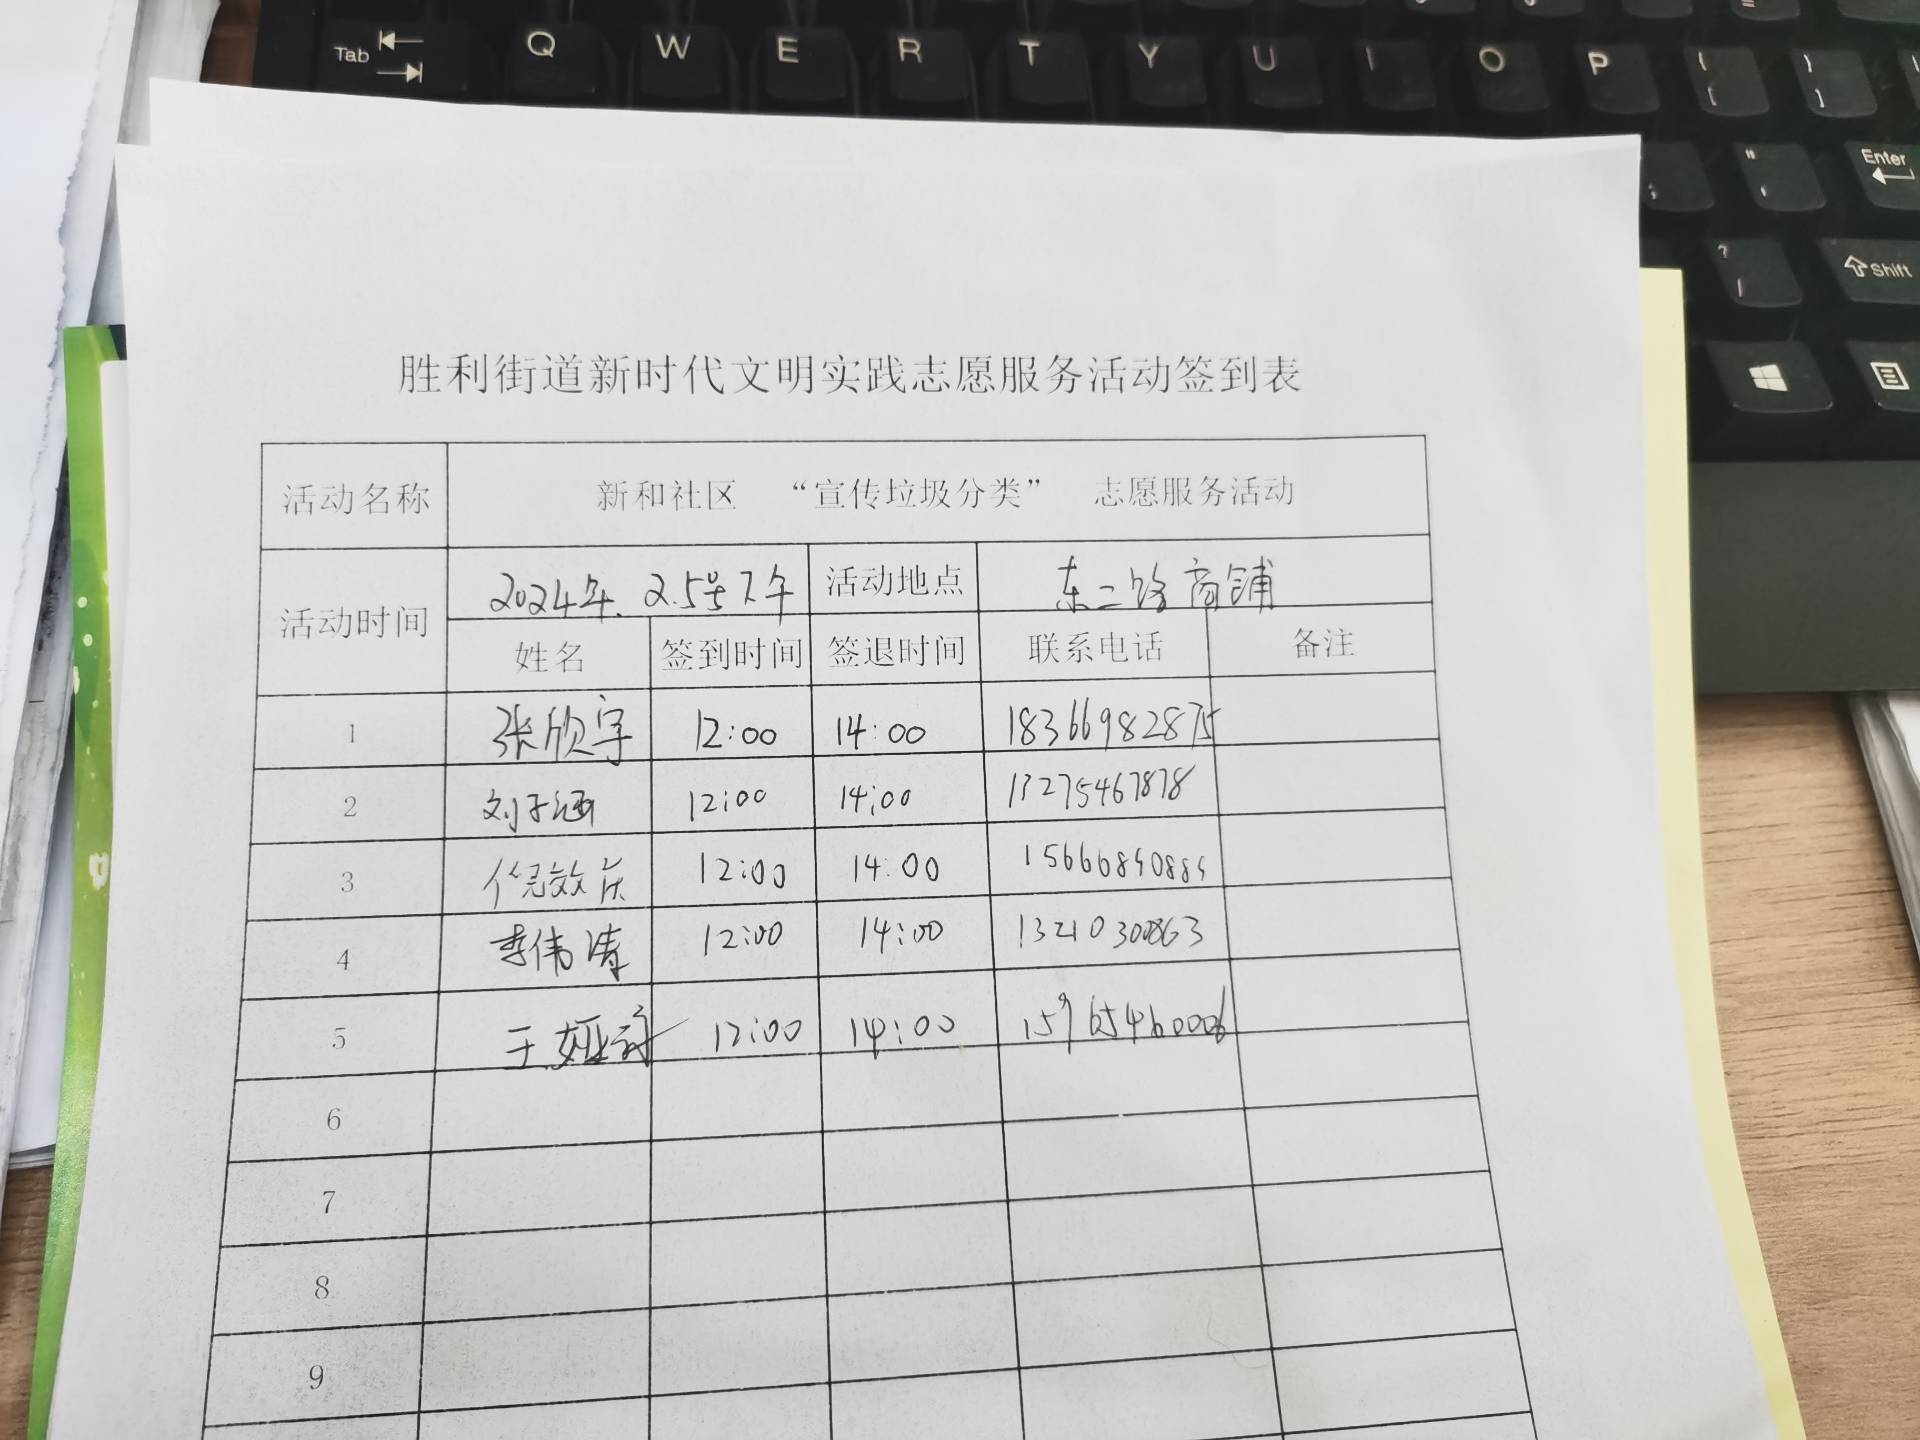 Tab Q W E R T Y U I O P { [ } ]
" ' Enter
? / Shift
胜利街道新时代文明实践志愿服务活动签到表
活动名称 新和社区 “宣传垃圾分类” 志愿服务活动
活动时间 2024年.2.5号下午 活动地点 东二路商铺
姓名 签到时间 签退时间 联系电话 备注
1 张欣宇 12:00 14:00 18366982875
2 刘子涵 12:00 14:00 13275467878
3 倪效庆 12:00 14:00
4 李伟涛 12:00 14:00 13210300863
5 12:00 14:00 15965460006
6
7
8
9